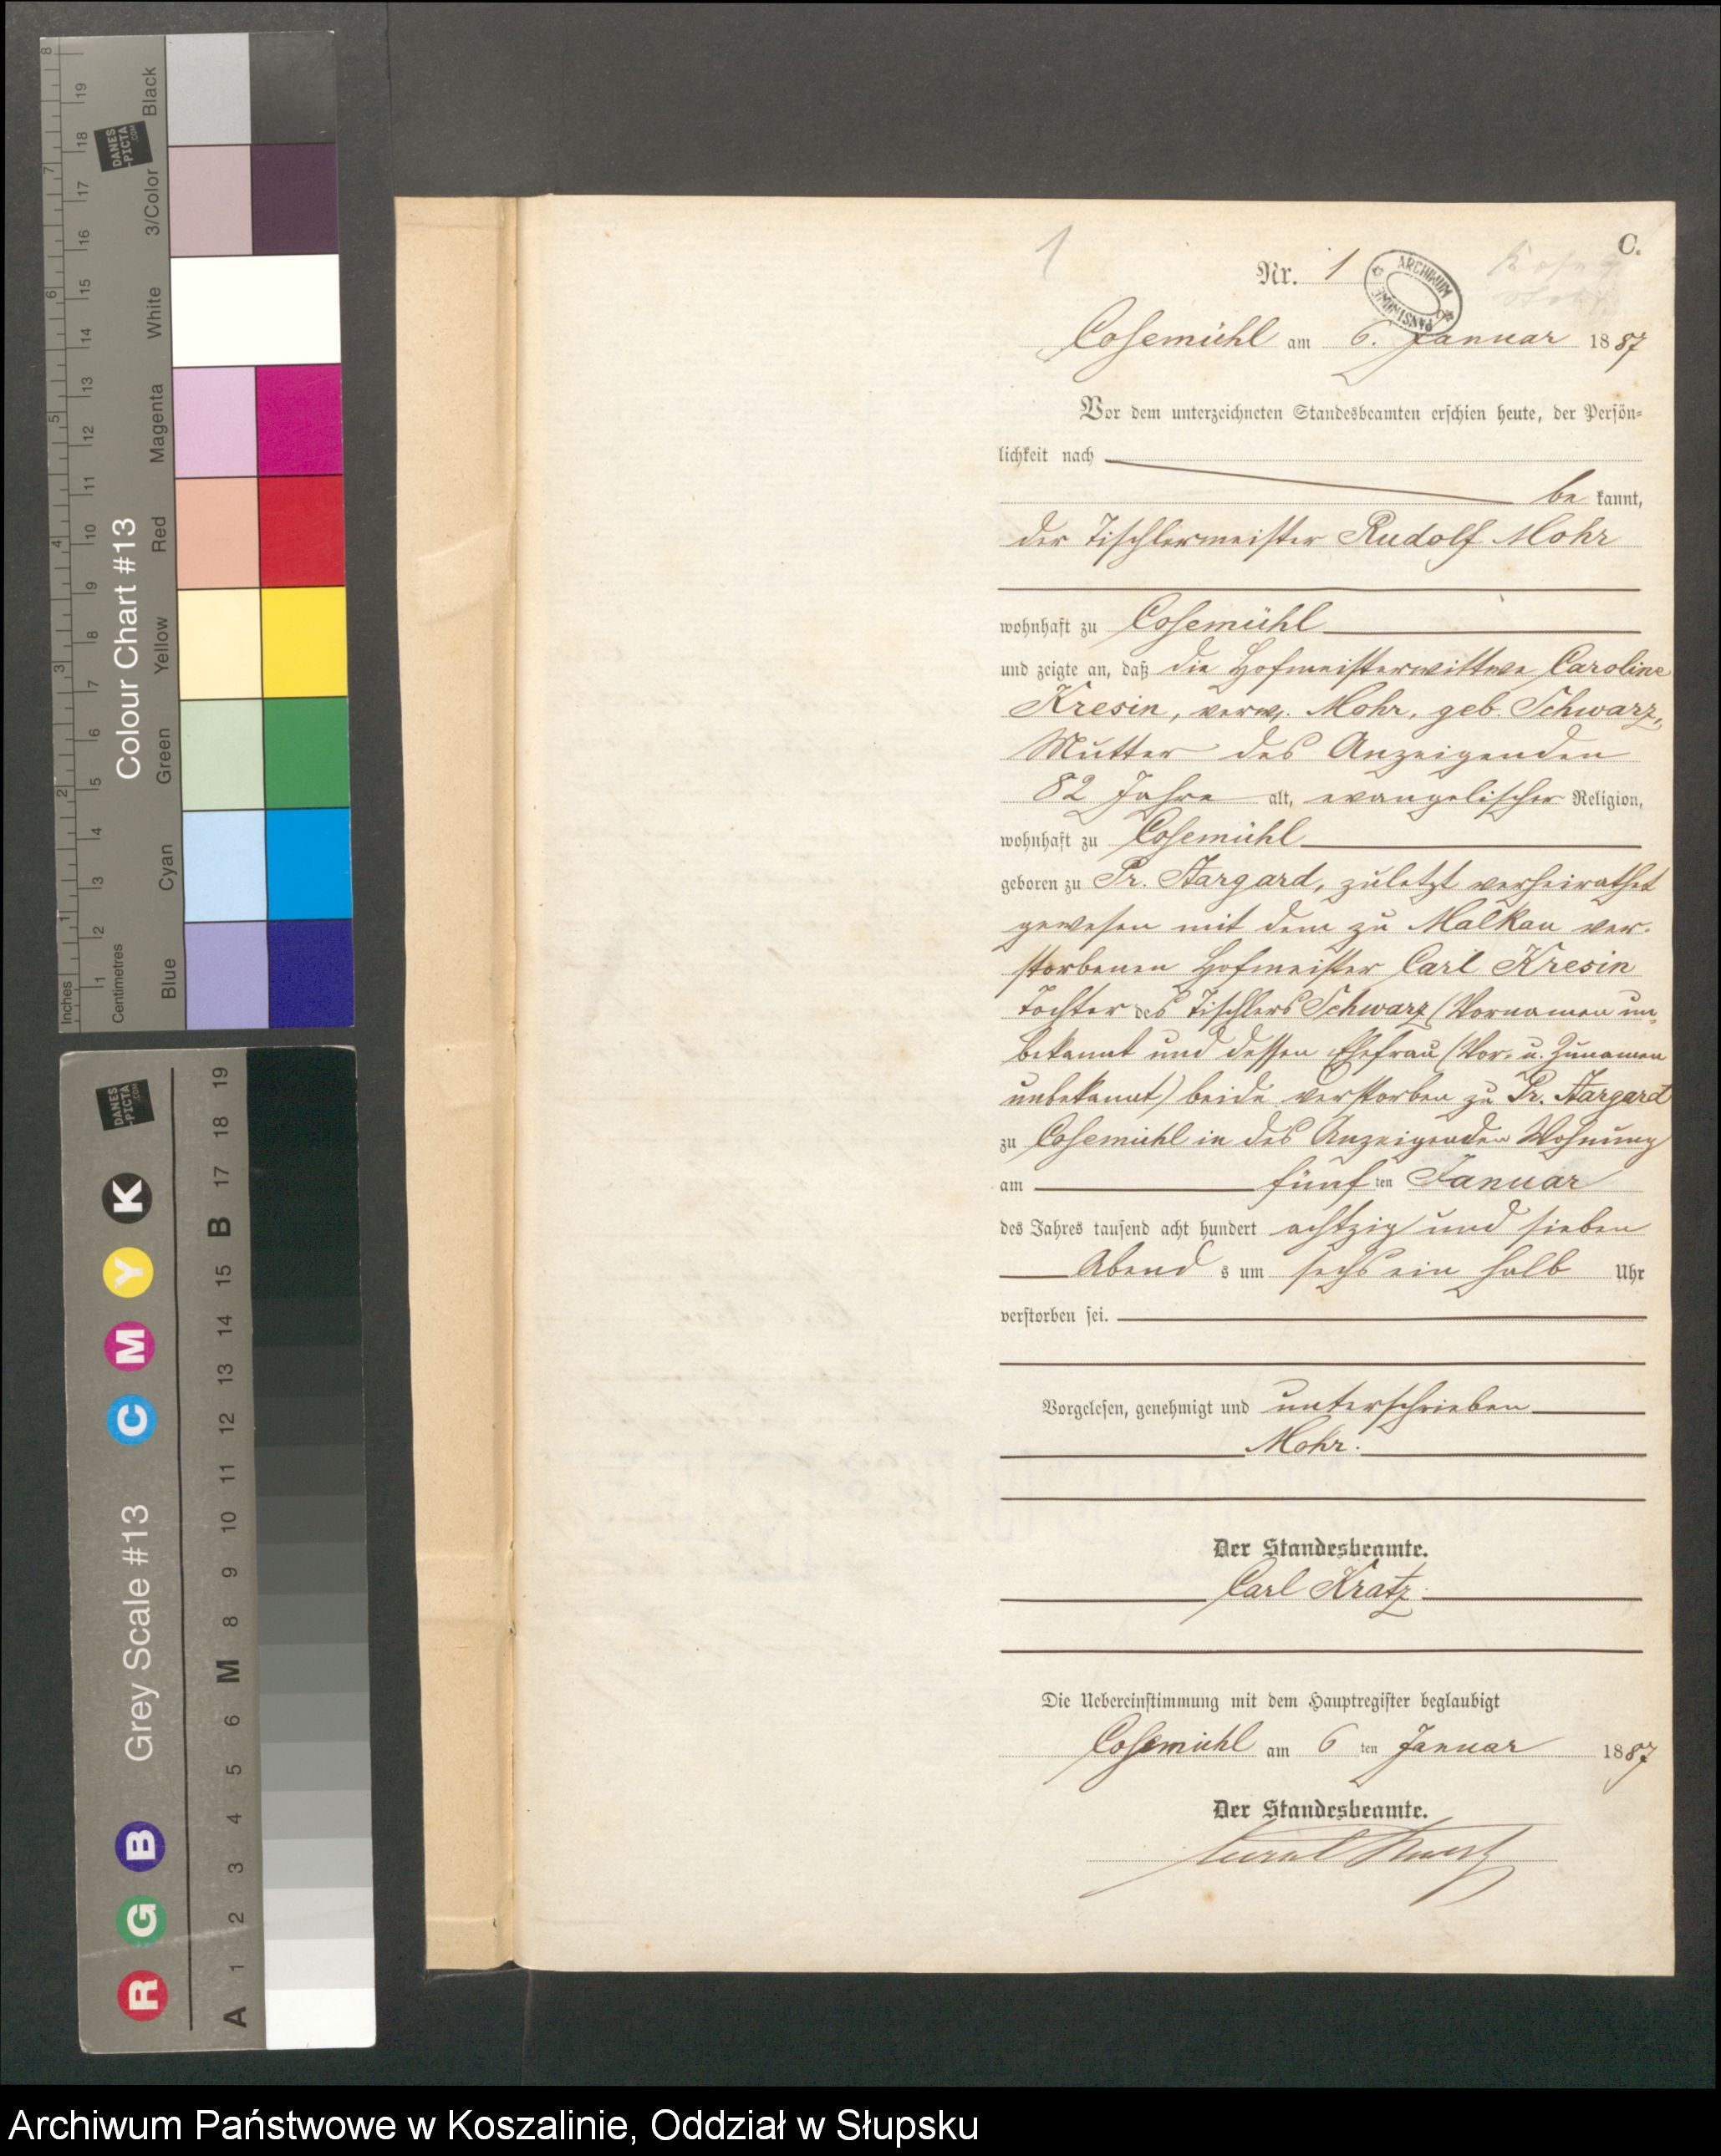 1
C.
Nr. 1
ARCHIWUM PAŃSTWOWE
Cosemühl am 6. Januar 1887
Vor dem unterzeichneten Standesbeamten erschien heute, der Persön-
lichkeit nach
be kannt,
der Tischlermeister Rudolf Mohr
wohnhaft zu Cosemühl
und zeigte an, daß die Hofmeisterwittwe Caroline
Kresin, verw. Mohr, geb. Schwarz,
Mutter des Anzeigenden
82 Jahre alt, evangelischer Religion,
wohnhaft zu Cosemühl
geboren zu Pr. Stargard, zuletzt verheirathet
gewesen mit dem zu Malkau ver-
storbenen Hofmeister Carl Kresin
Tochter des Tischlers Schwarz (Vornamen un-
bekannt und dessen Ehefrau (Vor- u. Zunamen
unbekannt) beide verstorben zu Pr. Stargard
zu Cosemühl in des Anzeigenden Wohnung
am fünf ten Januar
des Jahres tausend acht hundert achtzig und sieben
Abend s um sechs ein halb Uhr
verstorben sei.
Vorgelesen, genehmigt und unterschrieben
Mohr.
Der Standesbeamte.
Carl Kratz.
Die Uebereinstimmung mit dem Hauptregister beglaubigt
Cosemühl am 6 ten Januar 1887
Der Standesbeamte.
Colour Chart #13
Blue Cyan Green Yellow Red Magenta White 3/Color Black
Inches 1 2 3 4 5 6 7 8
Centimetres 1 2 3 4 5 6 7 8 9 10 11 12 13 14 15 16 17 18 19
DANES
-PICTA
.COM
Grey Scale #13
R G B C M Y K
DANES
-PICTA
.COM
A 1 2 3 4 5 6 M 8 9 10 11 12 13 14 15 B 17 18 19
Archiwum Państwowe w Koszalinie, Oddział w Słupsku